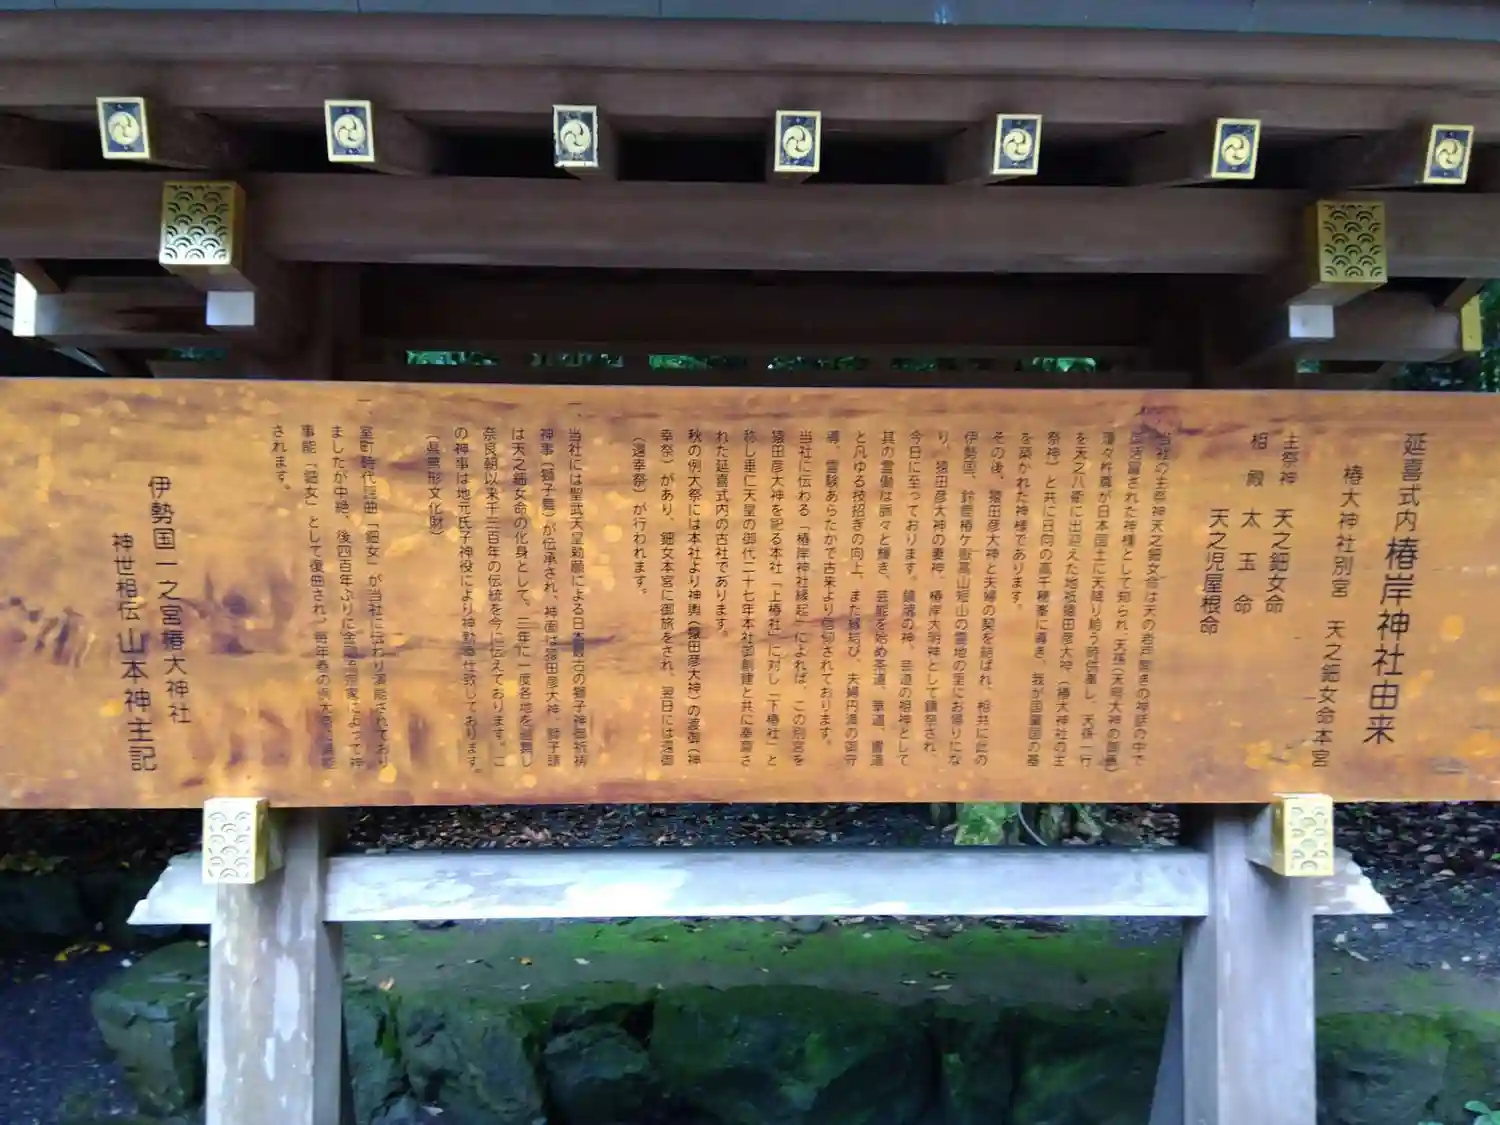 延喜式内 椿岸神社由来
椿大神社別宮 天之鈿女命本宮
主祭神 天之鈿女命
相殿 太玉命
天之児屋根命
当社の主祭神天之鈿女命は天の岩戸開きの神話の中で
御活躍された神様として知られ、天孫(天照大神の御孫)
瓊々杵尊が日本国土に天降り給う時供奉し、天孫一行
を天之八衢に出迎えた地祇猿田彦大神(椿大神社の主
祭神)と共に日向の高千穂峯に導き、我が国肇国の基
を築かれた神様であります。
その後、猿田彦大神と夫婦の契を結ばれ、相共に此の
伊勢国、鈴鹿椿ケ嶽高山短山の霊地の里にお帰りにな
り、猿田彦大神の妻神、椿岸大明神として鎮祭され、
今日に至っております。鎮魂の神、芸道の祖神として
其の霊働は赫々と輝き、芸能を始め茶道、華道、書道
と凡ゆる技招ぎの向上、また縁結び、夫婦円満の御守
導、霊験あらたかで古来より信仰されております。
当社に伝わる「椿岸神社縁起」によれば、この別宮を
猿田彦大神を祀る本社「上椿社」に対し「下椿社」と
称し垂仁天皇の御代二十七年本社御創建と共に奉斎さ
れた延喜式内の古社であります。
秋の例大祭には本社より神輿(猿田彦大神)の渡御(神
幸祭)があり、鈿女本宮に御旅をされ、翌日には還御
(還幸祭)が行われます。
当社には聖武天皇勅願による日本最古の獅子神御祈祷
神事(獅子舞)が伝承され、神面は猿田彦大神、獅子頭
は天之鈿女命の化身として、三年に一度各地を巡舞し
奈良朝以来千三百年の伝統を今に伝えております。こ
の神事は地元氏子神役により神勤奉仕致しております。
(県無形文化財)
室町時代謡曲「鈿女」が当社に伝わり演能されており
ましたが中絶、後四百年ぶりに金剛流宗家によって神
事能「鈿女」として復曲され、毎年春の例大祭に演能
されます。
伊勢国一之宮椿大神社
神世相伝 山本神主記